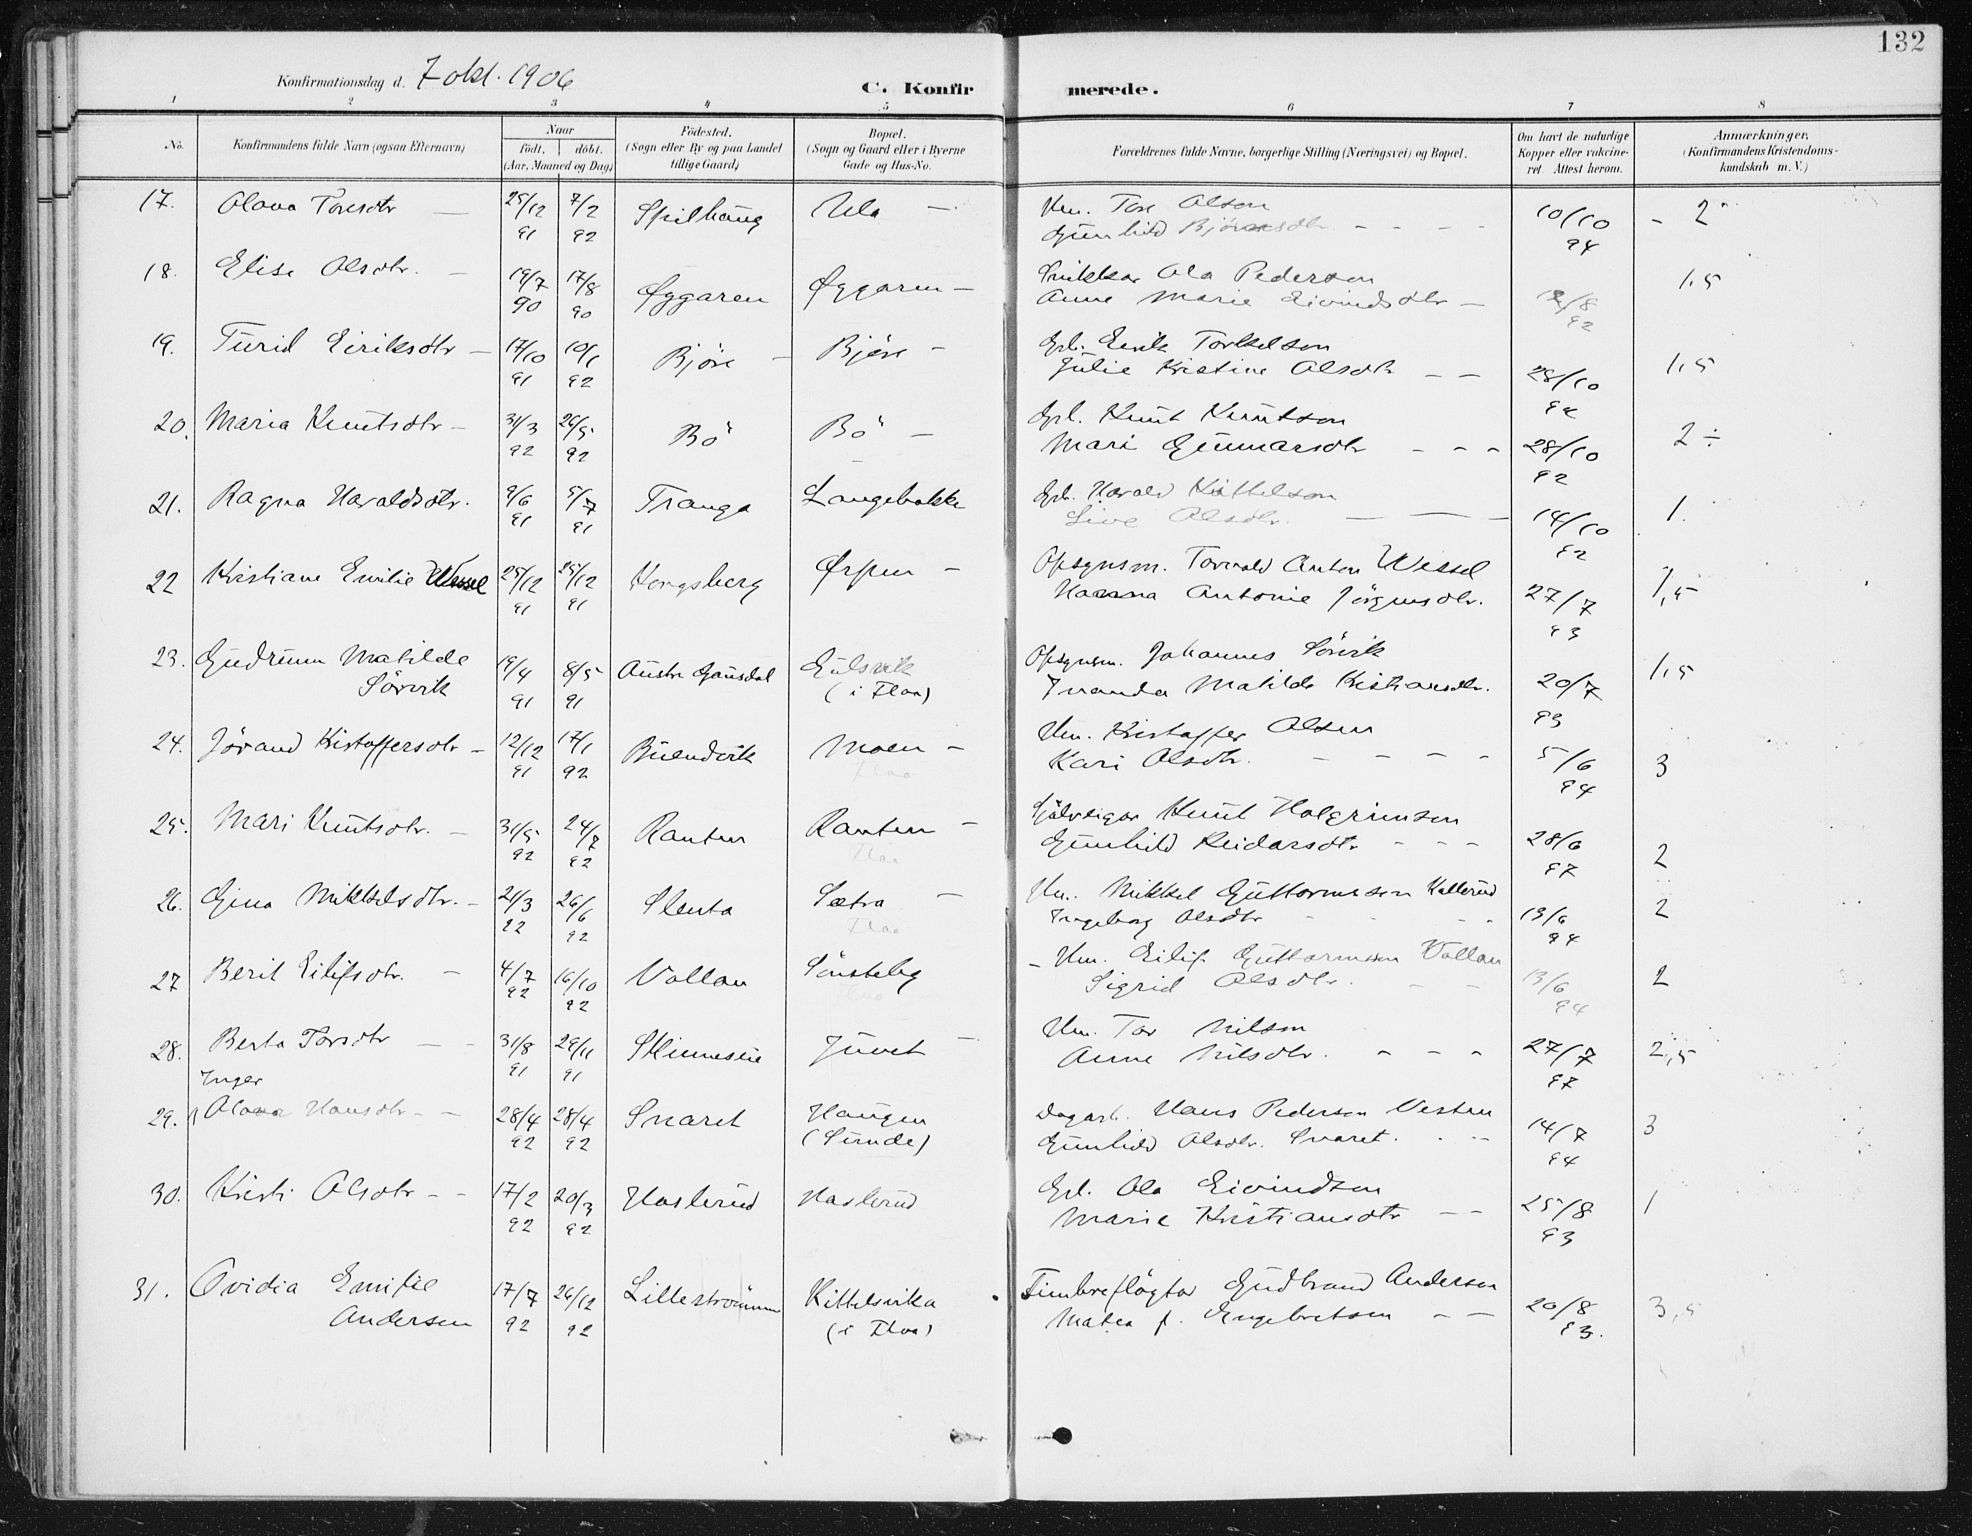 132
Konfirmationsdag d. 7 okt. 1906
C. Konfirmerede.
1 2 3 4 5 6 7 8
No. Konfirmandens fulde Navn (ogsaa Efternavn) Naar født. døbt. (Aar, Maaned og Dag) Födested. (Sogn eller By og paa Landet tillige Gaard) Bopæl. (Sogn og Gaard eller i Byerne Gade og Hus-No. Forældrenes fulde Navne, borgerlige Stilling (Næringsvei) og Bopæl. Om havt de naturlige Kopper eller vakcineret. Attest herom. Anmærkninger. (Konfirmandens Kristendomskundskab m. V.)
17. Olava Toresdtr — 25/12 91 7/2 92 Spilhaug Ula — Hm. Tore Olson 10/10 94 2
Gunhild Bjørnsdtr. - - -
18. Elise Olsdtr. — 19/7 90 17/8 90 Øygaren Øygaren — Snikkar Ola Pederson 92 1,5
Anne Marie Eivindsdtr —
19. Turid Eiriksdtr — 17/10 91 10/1 92 Bjøre — Bjøre — Gbr. Eirik Torkelson 28/10 92 1,5
Julie Kristine Olsdtr — —
20. Maria Knutsdtr — 31/3 92 26/5 92 Bö Bö — Gbr. Knut Knutson 28/10 92 2 ÷
Mari Gunnarsdtr - - -
21. Ragna Haraldsdtr. 9/6 91 5/7 91 Tranga Langebakke Gbr. Harald Kittelson 14/10 92 1.
Live Olsdtr. — — —
22 Kristiane Emilie Wessel 25/12 91 25/12 91 Kongsberg Ørpen — Opsynsm. Torvald Anton Wessel 27/7 93 1,5
Hanna Antonie Jörgensdtr.
23. Gudrunn Matilde 19/4 91 8/5 91 Austre Gausdal Gulsvik Opsynsm. Johannes Sörvik 20/7 93 1,5
Sörvik (i Flaa) Matilde Kristiansdtr.
24. Jörand Kristoffersdtr — 12/12 91 17/1 92 Buendvik Moen — Hm. Kristoffer Olsen 5/6 94 3
Flaa Kari Olsdtr. - - - -
25. Mari Knutsdtr. — 31/5 92 24/7 92 Ranten Ranten — Sjølveigar Knut Holgrimson 28/6 97 2
Flaa Gunhild Reidarsdtr - - -
26. Gina Mikkelsdtr. — 21/3 22 26/6 92 Slenta Sætra — Hm. Mikkel Guttormsson Kollerud 13/6 94 2
Flaa Ingeborg Olsdtr - - - -
27 Berit Eilifsdtr. — 4/7 92 16/10 92 Vollan Sönsteby — Hm. Eilif Guttormsson Vollan 13/6 94 2
Sigrid Olsdtr. - -
28. Berta Torsdtr — - 31/8 91 29/11 91 Skinneseie Juvet — Hm. Tor Nilson 27/7 97 2,5
Anne Nilsdtr. - - -
Inger
29. Olava Hansdtr - — 28/4 92 28/4 92 Snaret Haugen Dagarb. Hans Pederson Vesten 14/7 94 3
(Sunde) Gunhild Olsdtr. Snaret. - —
30. Kristi Olsdtr - - 17/2 92 20/3 92 Haslerud Haslerud Gbr. Ola Eivindson 25/8 93 1
Marie Kristiansdtr — —
31. Ovidia Emilie 17/7 92 26/12 92 Lilleströmmen Kittelsvika Timbrefløgtar Gudbrand Anderson 20/8 93. 3,5
Andersen (i Flaa) Matea f. Engebretsen — —